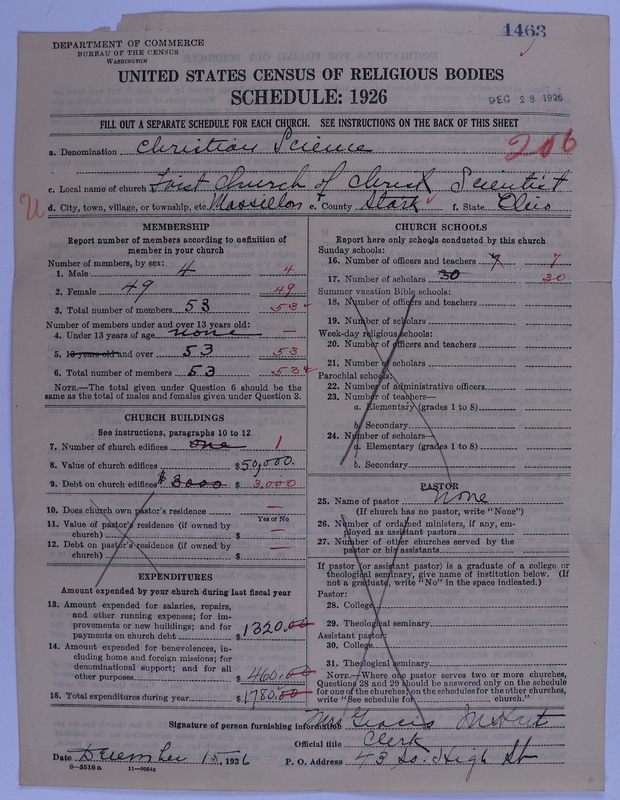 1463
DEPARTMENT OF COMMERCE
BUREAU OF THE CENSUS
WASHINGTON
UNITED STATES CENSUS OF RELIGIOUS BODIES
SCHEDULE: 1926
DEC 28 1926
FILL OUT A SEPARATE SCHEDULE FOR EACH CHURCH. SEE INSTRUCTIONS ON THE BACK OF THIS SHEET
a. Denomination Christian Science
206
c. Local name of church First Church of Christ Scientist
U d. City, town, village, or township, etc. Massillon e. County Stark f. State Ohio
MEMBERSHIP
Report number of members according to definition of
member in your church
Number of members, by sex:
1. Male 4 4
2. Female 49 49
3. Total number of members 53 53
Number of members under and over 13 years old:
4. Under 13 years of age none —
5. 13 years old and over 53 53
6. Total number of members 53 53
NOTE.—The total given under Question 6 should be
same as the total of males and females given under Question 3.
CHURCH BUILDINGS
See instructions, paragraphs 10 to 12
7. Number of church edifices one 1
8. Value of church edifices $50,000.
9. Debt on church edifices $3000 $3,000
10. Does church own pastor's residence —
Yes or No
11. Value of pastor's residence (if owned by
church) $ —
12. Debt on pastor's residence (if owned by
church) $ —
EXPENDITURES
Amount expended by your church during last fiscal year
13. Amount expended for salaries, repairs,
and other running expenses; for im-
provements or new buildings; and for
payments on church debt $1320.00
14. Amount expended for benevolences, in-
cluding home and foreign missions; for
denominational support; and for all
other purposes $460.00
15. Total expenditures during year $1780.00
CHURCH SCHOOLS
Report here only schools conducted by this church
Sunday schools:
16. Number of officers and teachers 7 7
17. Number of scholars 30 30
Summer vacation Bible schools:
18. Number of officers and teachers
19. Number of scholars
Week-day religious schools:
20. Number of officers and teachers
21. Number of scholars
Parochial schools:
22. Number of administrative officers
23. Number of teachers—
a. Elementary (grades 1 to 8)
b. Secondary
24. Number of scholars—
a. Elementary (grades 1 to 8)
b. Secondary
PASTOR
25. Name of pastor None
(If church has no pastor, write "None")
26. Number of ordained ministers, if any, em-
ployed as assistant pastors
27. Number of other churches served by the
pastor or his assistants
If pastor (or assistant pastor) is a graduate of a college or
theological seminary, give name of institution below. (If
not a graduate, write "No" in the space indicated.)
Pastor:
28. College
29. Theological seminary
Assistant pastor:
30. College
31. Theological seminary
NOTE.—Where one pastor serves two or more churches,
Questions 28 and 29 should be answered only on the schedule
for one of the churches; on the schedules for the other churches,
write "See schedule for church."
Signature of person furnishing information Mrs
Official title Clerk
Date December 15, 1926 P. O. Address 43 So. High St
8—5518a 11—9054z